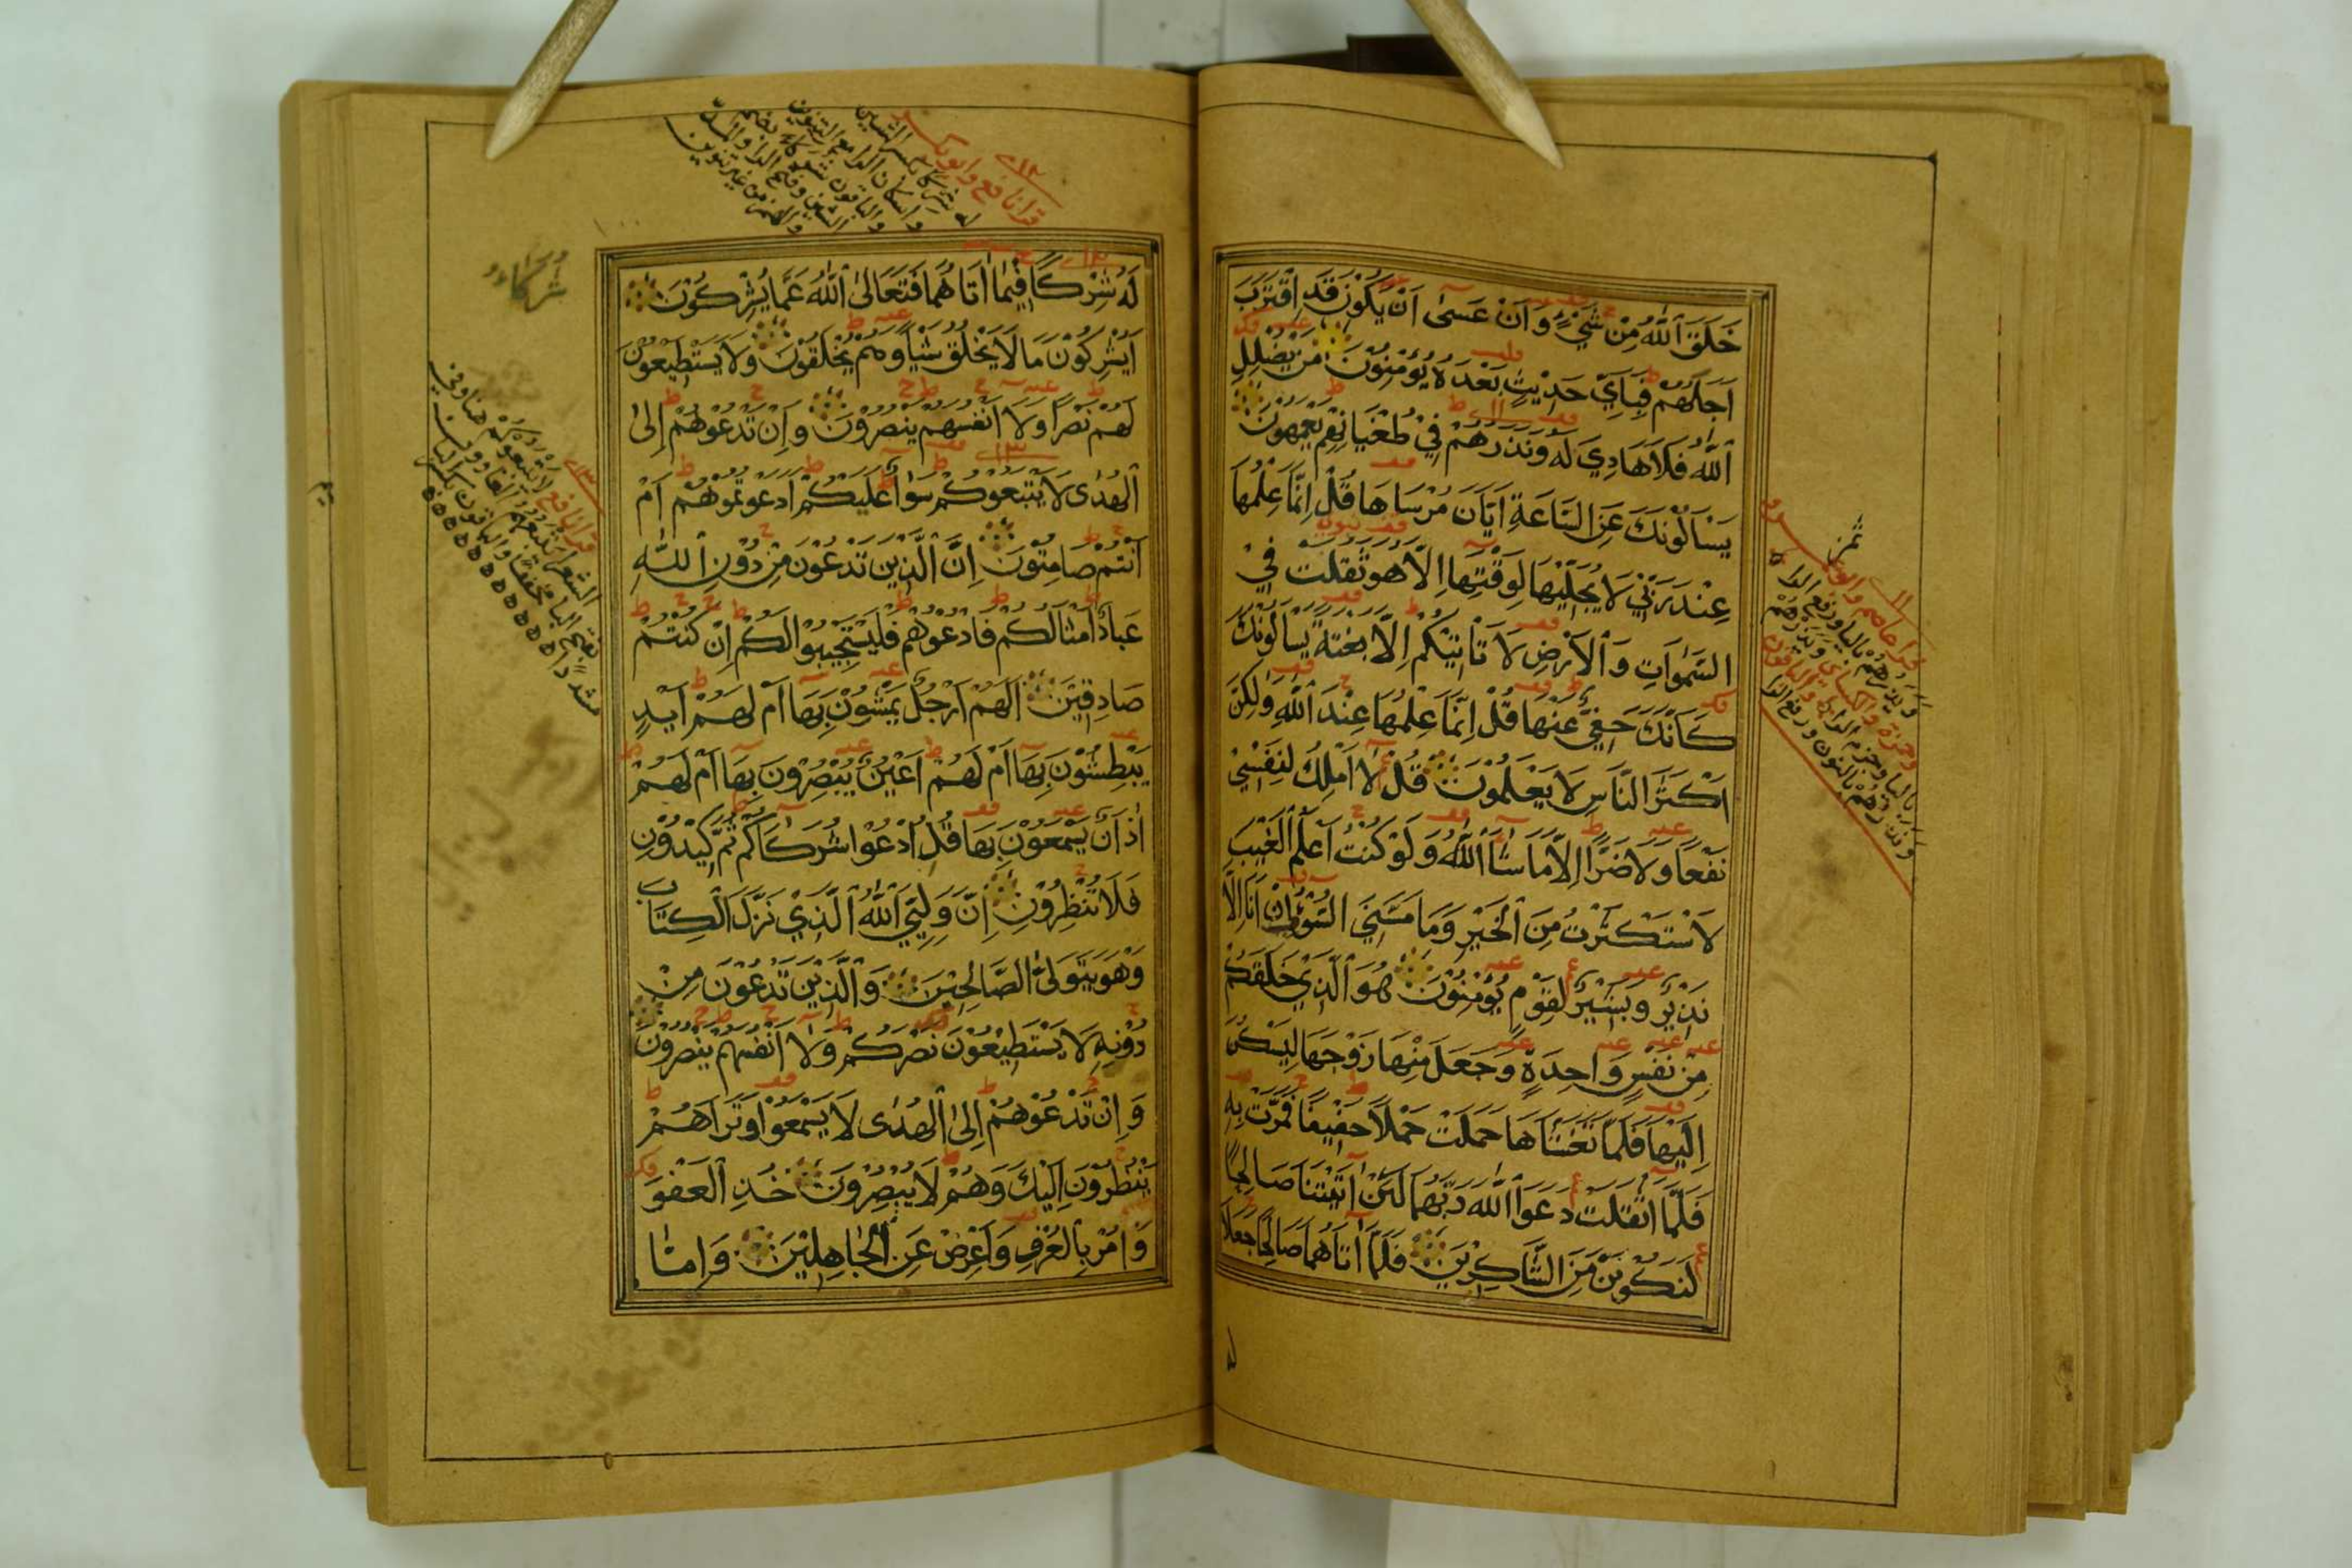 خَلَقَ ٱللَّهُ مِنْ شَيْءٍ وَاَنْ عَسٰى اَنْ يَكُوْنَ قَدِ اقْتَرَبَ
اَجَلُهُمْ فَبِاَيِّ حَدِيْثٍ بَعْدَهُ يُؤْمِنُوْنَ مَنْ يُضْلِلِ
ٱللَّهُ فَلَا هَادِيَ لَهُ وَنَذَرُهُمْ فِيْ طُغْيَانِهِمْ يَعْمَهُوْنَ
يَسْاَلُوْنَكَ عَنِ السَّاعَةِ اَيَّانَ مُرْسَاهَا قُلْ اِنَّمَا عِلْمُهَا
عِنْدَ رَبِّيْ لَا يُجَلِّيْهَا لِوَقْتِهَا اِلَّا هُوَ ثَقُلَتْ فِيْ
السَّمٰوَاتِ وَٱلْاَرْضِ لَا تَاْتِيْكُمْ اِلَّا بَغْتَةً يَسْاَلُوْنَكَ
كَاَنَّكَ حَفِيٌّ عَنْهَا قُلْ اِنَّمَا عِلْمُهَا عِنْدَ ٱللَّهِ وَلٰكِنَّ
اَكْثَرَ النَّاسِ لَا يَعْلَمُوْنَ قُلْ لَا اَمْلِكُ لِنَفْسِيْ
نَفْعًا وَلَا ضَرًّا اِلَّا مَا شَاءَ ٱللَّهُ وَلَوْ كُنْتُ اَعْلَمُ ٱلْغَيْبَ
لَاسْتَكْثَرْتُ مِنَ ٱلْخَيْرِ وَمَا مَسَّنِيَ السُّوْءُ اِنْ اَنَا اِلَّا
نَذِيْرٌ وَبَشِيْرٌ لِقَوْمٍ يُؤْمِنُوْنَ هُوَ ٱلَّذِيْ خَلَقَكُمْ
مِنْ نَفْسٍ وَاحِدَةٍ وَجَعَلَ مِنْهَا زَوْجَهَا لِيَسْكُنَ
اِلَيْهَا فَلَمَّا تَغَشَّاهَا حَمَلَتْ حَمْلًا خَفِيْفًا فَمَرَّتْ بِهِ
فَلَمَّا اَثْقَلَتْ دَعَوَا ٱللَّهَ رَبَّهُمَا لَئِنْ اٰتَيْتَنَا صَالِحًا
لَنَكُوْنَنَّ مِنَ الشَّاكِرِيْنَ فَلَمَّا اٰتَاهُمَا صَالِحًا جَعَلَا
لَهُ شِرْكًا فِيْمَا اٰتَاهُمَا فَتَعَالَى ٱللَّهُ عَمَّا يُشْرِكُوْنَ
اَيُشْرِكُوْنَ مَا لَا يَخْلُقُ شَيْئًا وَهُمْ يُخْلَقُوْنَ وَلَا يَسْتَطِيْعُوْنَ
لَهُمْ نَصْرًا وَلَا اَنْفُسَهُمْ يَنْصُرُوْنَ وَاِنْ تَدْعُوْهُمْ اِلَى
ٱلْهُدٰى لَا يَتَّبِعُوْكُمْ سَوَاءٌ عَلَيْكُمْ اَدَعَوْتُمُوْهُمْ اَمْ
اَنْتُمْ صَامِتُوْنَ اِنَّ ٱلَّذِيْنَ تَدْعُوْنَ مِنْ دُوْنِ ٱللَّهِ
عِبَادٌ اَمْثَالُكُمْ فَادْعُوْهُمْ فَلْيَسْتَجِيْبُوْا لَكُمْ اِنْ كُنْتُمْ
صَادِقِيْنَ اَلَهُمْ اَرْجُلٌ يَمْشُوْنَ بِهَا اَمْ لَهُمْ اَيْدٍ
يَبْطِشُوْنَ بِهَا اَمْ لَهُمْ اَعْيُنٌ يُبْصِرُوْنَ بِهَا اَمْ لَهُمْ
اٰذَانٌ يَسْمَعُوْنَ بِهَا قُلِ ادْعُوْا شُرَكَاءَكُمْ ثُمَّ كِيْدُوْنِ
فَلَا تُنْظِرُوْنِ اِنَّ وَلِيِّيَ ٱللَّهُ ٱلَّذِيْ نَزَّلَ ٱلْكِتَابَ
وَهُوَ يَتَوَلَّى الصَّالِحِيْنَ وَٱلَّذِيْنَ تَدْعُوْنَ مِنْ
دُوْنِهِ لَا يَسْتَطِيْعُوْنَ نَصْرَكُمْ وَلَا اَنْفُسَهُمْ يَنْصُرُوْنَ
وَاِنْ تَدْعُوْهُمْ اِلَى ٱلْهُدٰى لَا يَسْمَعُوْا وَتَرَاهُمْ
يَنْظُرُوْنَ اِلَيْكَ وَهُمْ لَا يُبْصِرُوْنَ خُذِ ٱلْعَفْوَ
وَاْمُرْ بِالْعُرْفِ وَاَعْرِضْ عَنِ ٱلْجَاهِلِيْنَ وَاِمَّا
قرا نافع وابو بكر
له شركا بكسر الشين
واسكان الرا مع التنوين
والباقون شركاء بضم
الشين وفتح الرا والمد
والهمز من غير تنوين
شُرَكَاءَ